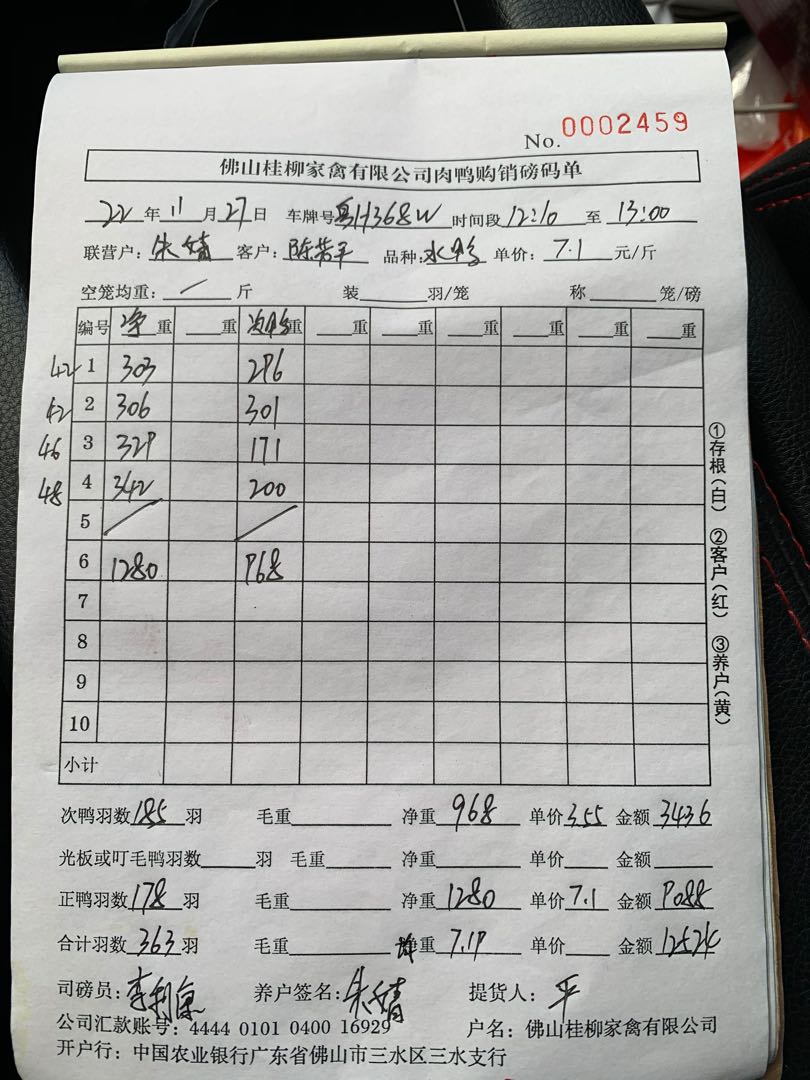 No. 0002459
佛山桂柳家禽有限公司肉鸭购销磅码单
22 年 11 月 27 日 车牌号 粤H368W 时间段 12:10 至 13:00
联营户: 朱靖 客户: 陈苇平 品种: 水鸭 单价: 7.1 元/斤
空笼均重: / 斤 装 羽/笼 称 笼/磅
编号 净重 重 次鸭重 重 重 重 重 重 重
42 1 303 296
42 2 306 301
46 3 329 171
48 4 342 200
5 / /
6 1280 968
7
8
9
10
小计
①存根(白) ②客户(红) ③养户(黄)
次鸭羽数 185 羽 毛重 净重 968 单价 3.55 金额 3436
光板或叮毛鸭羽数 羽 毛重 净重 单价 金额
正鸭羽数 178 羽 毛重 净重 1280 单价 7.1 金额 9088
合计羽数 363 羽 毛重 均重 7.19 单价 金额 12524
司磅员: 李利 养户签名: 朱靖 提货人: 平
公司汇款账号: 4444 0101 0400 16929 户名: 佛山桂柳家禽有限公司
开户行: 中国农业银行广东省佛山市三水区三水支行